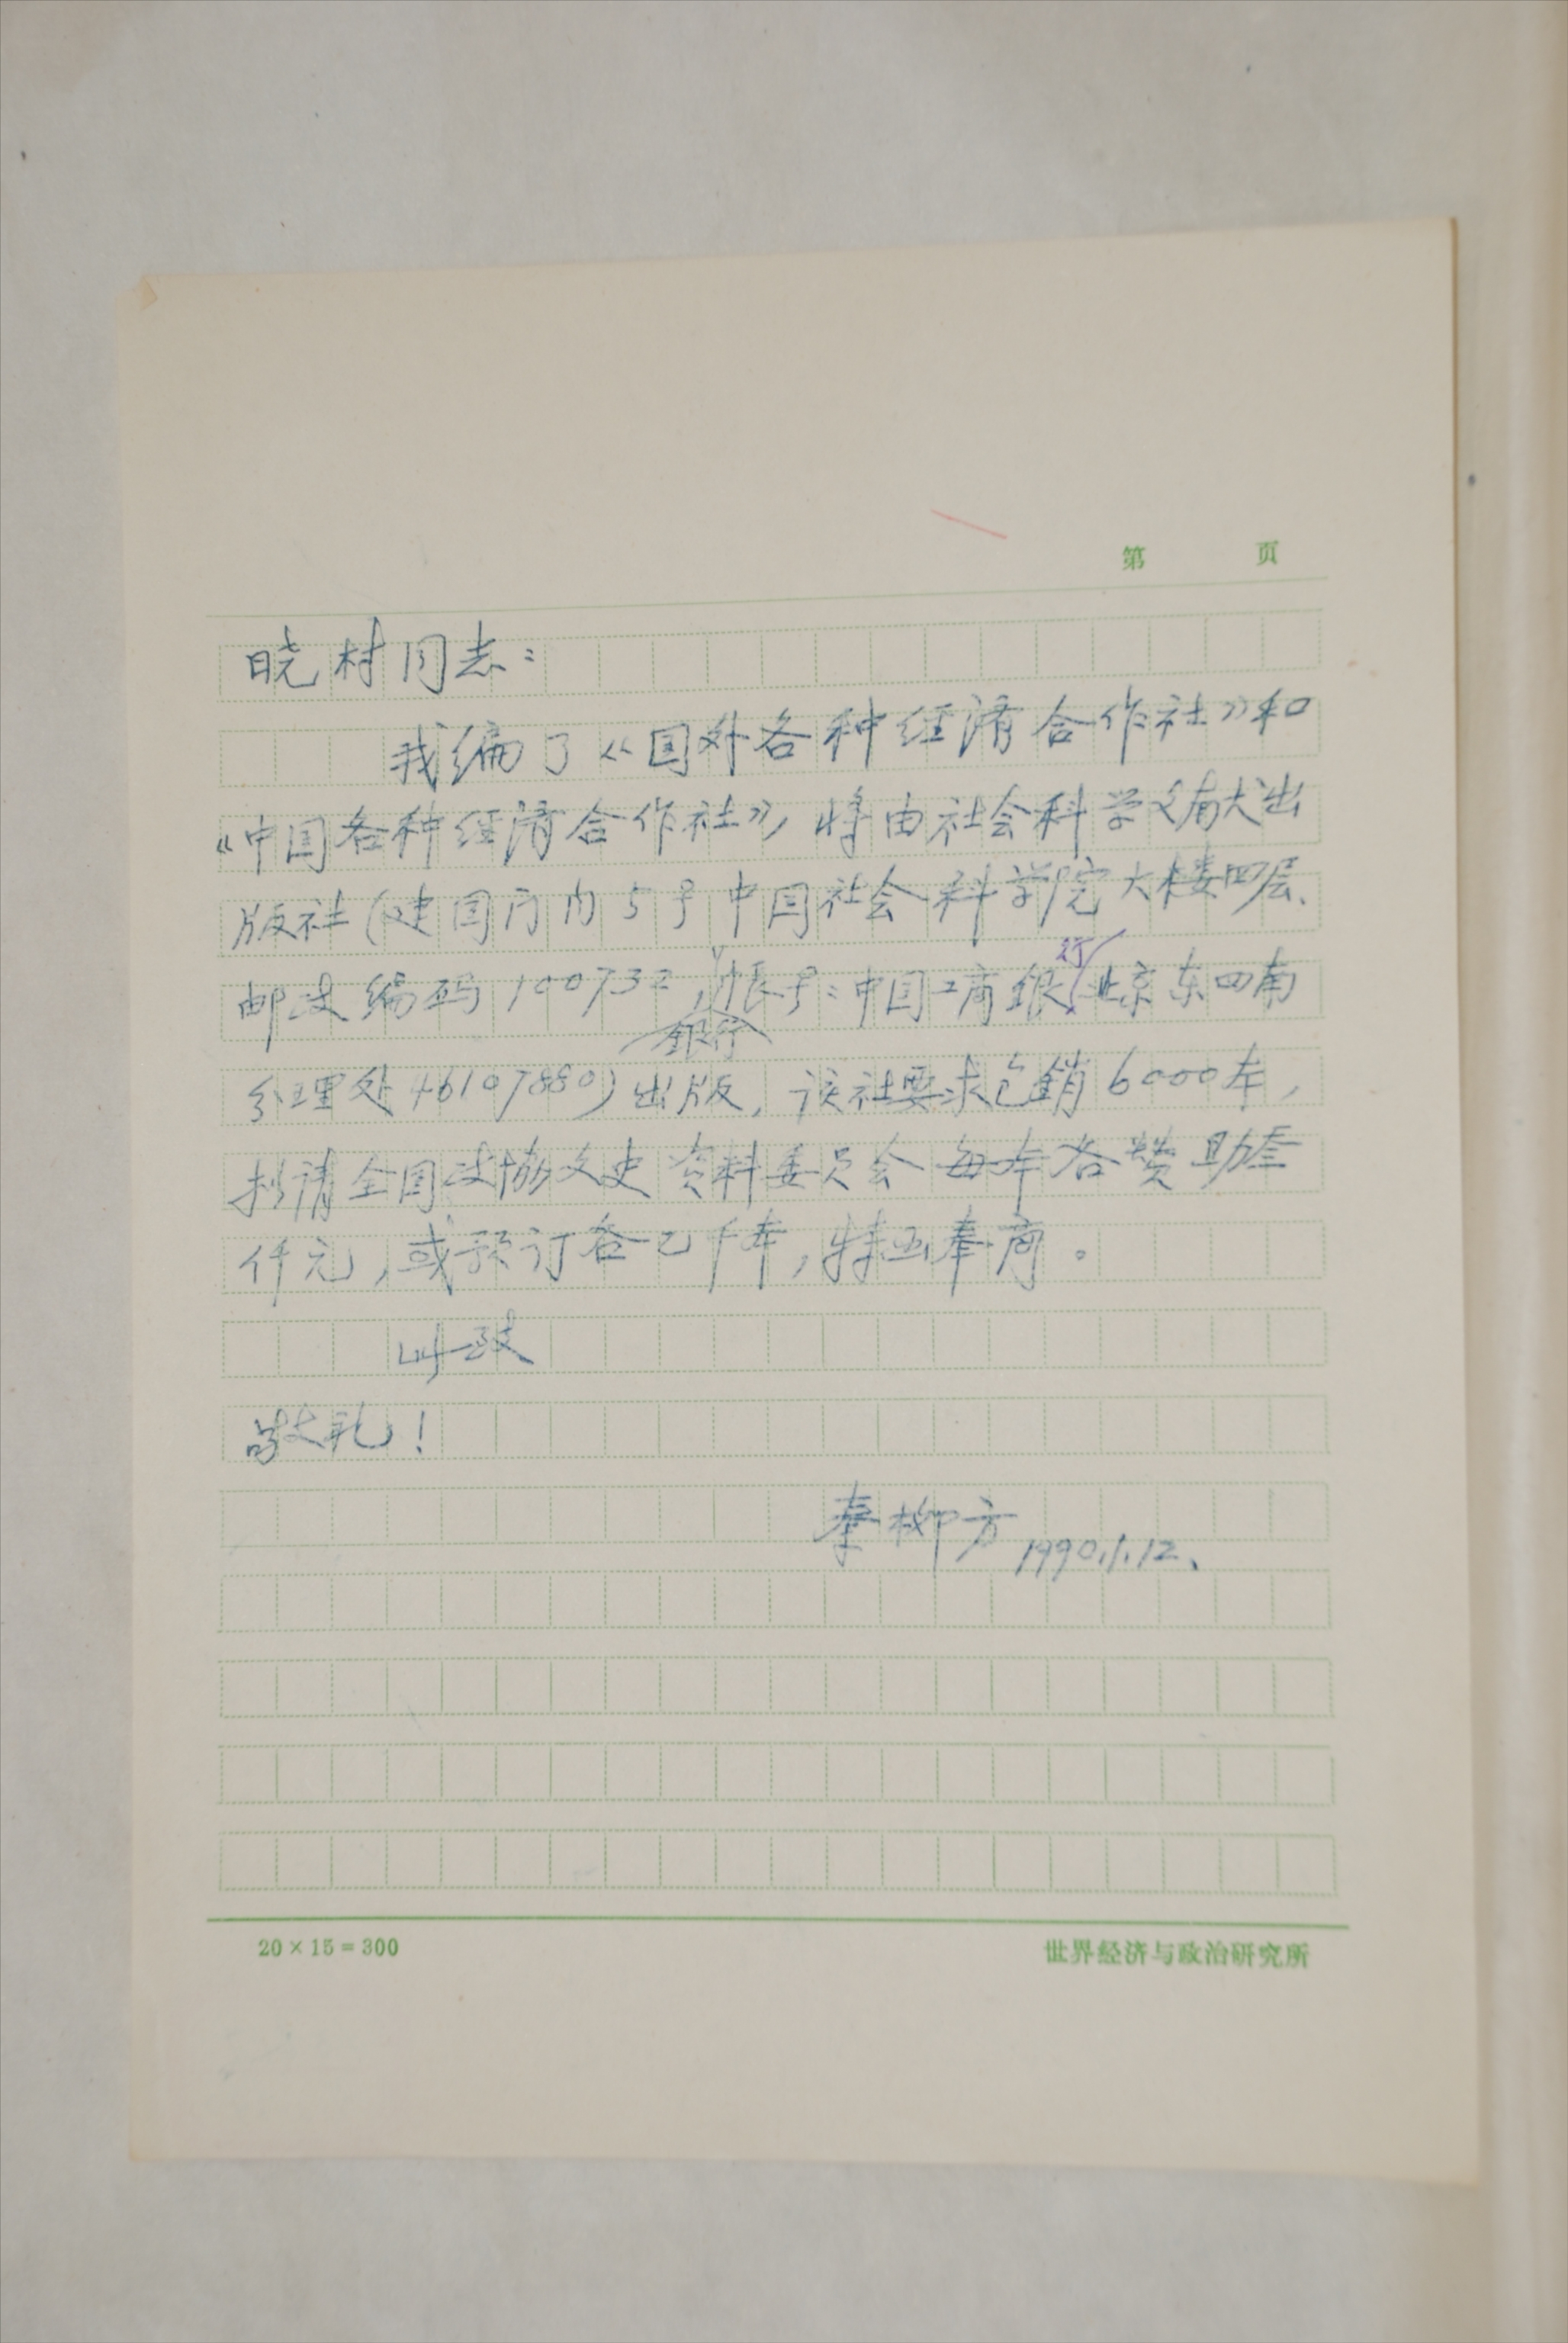 第 页
晓村同志：
我编了《国外各种经济合作社》和
《中国各种经济合作社》，将由社会科学文献出
版社（建国门内5号中国社会科学院大楼四层、
邮政编码100732，银行帐号：中国工商银行北京东四南
分理处46107880）出版，该社要求包销6000本，
拟请全国政协文史资料委员会每本各赞助叁
仟元，或预订各乙千本，特函奉商。
此致
敬礼！
秦柳方 1990.1.12、
20×15=300 世界经济与政治研究所